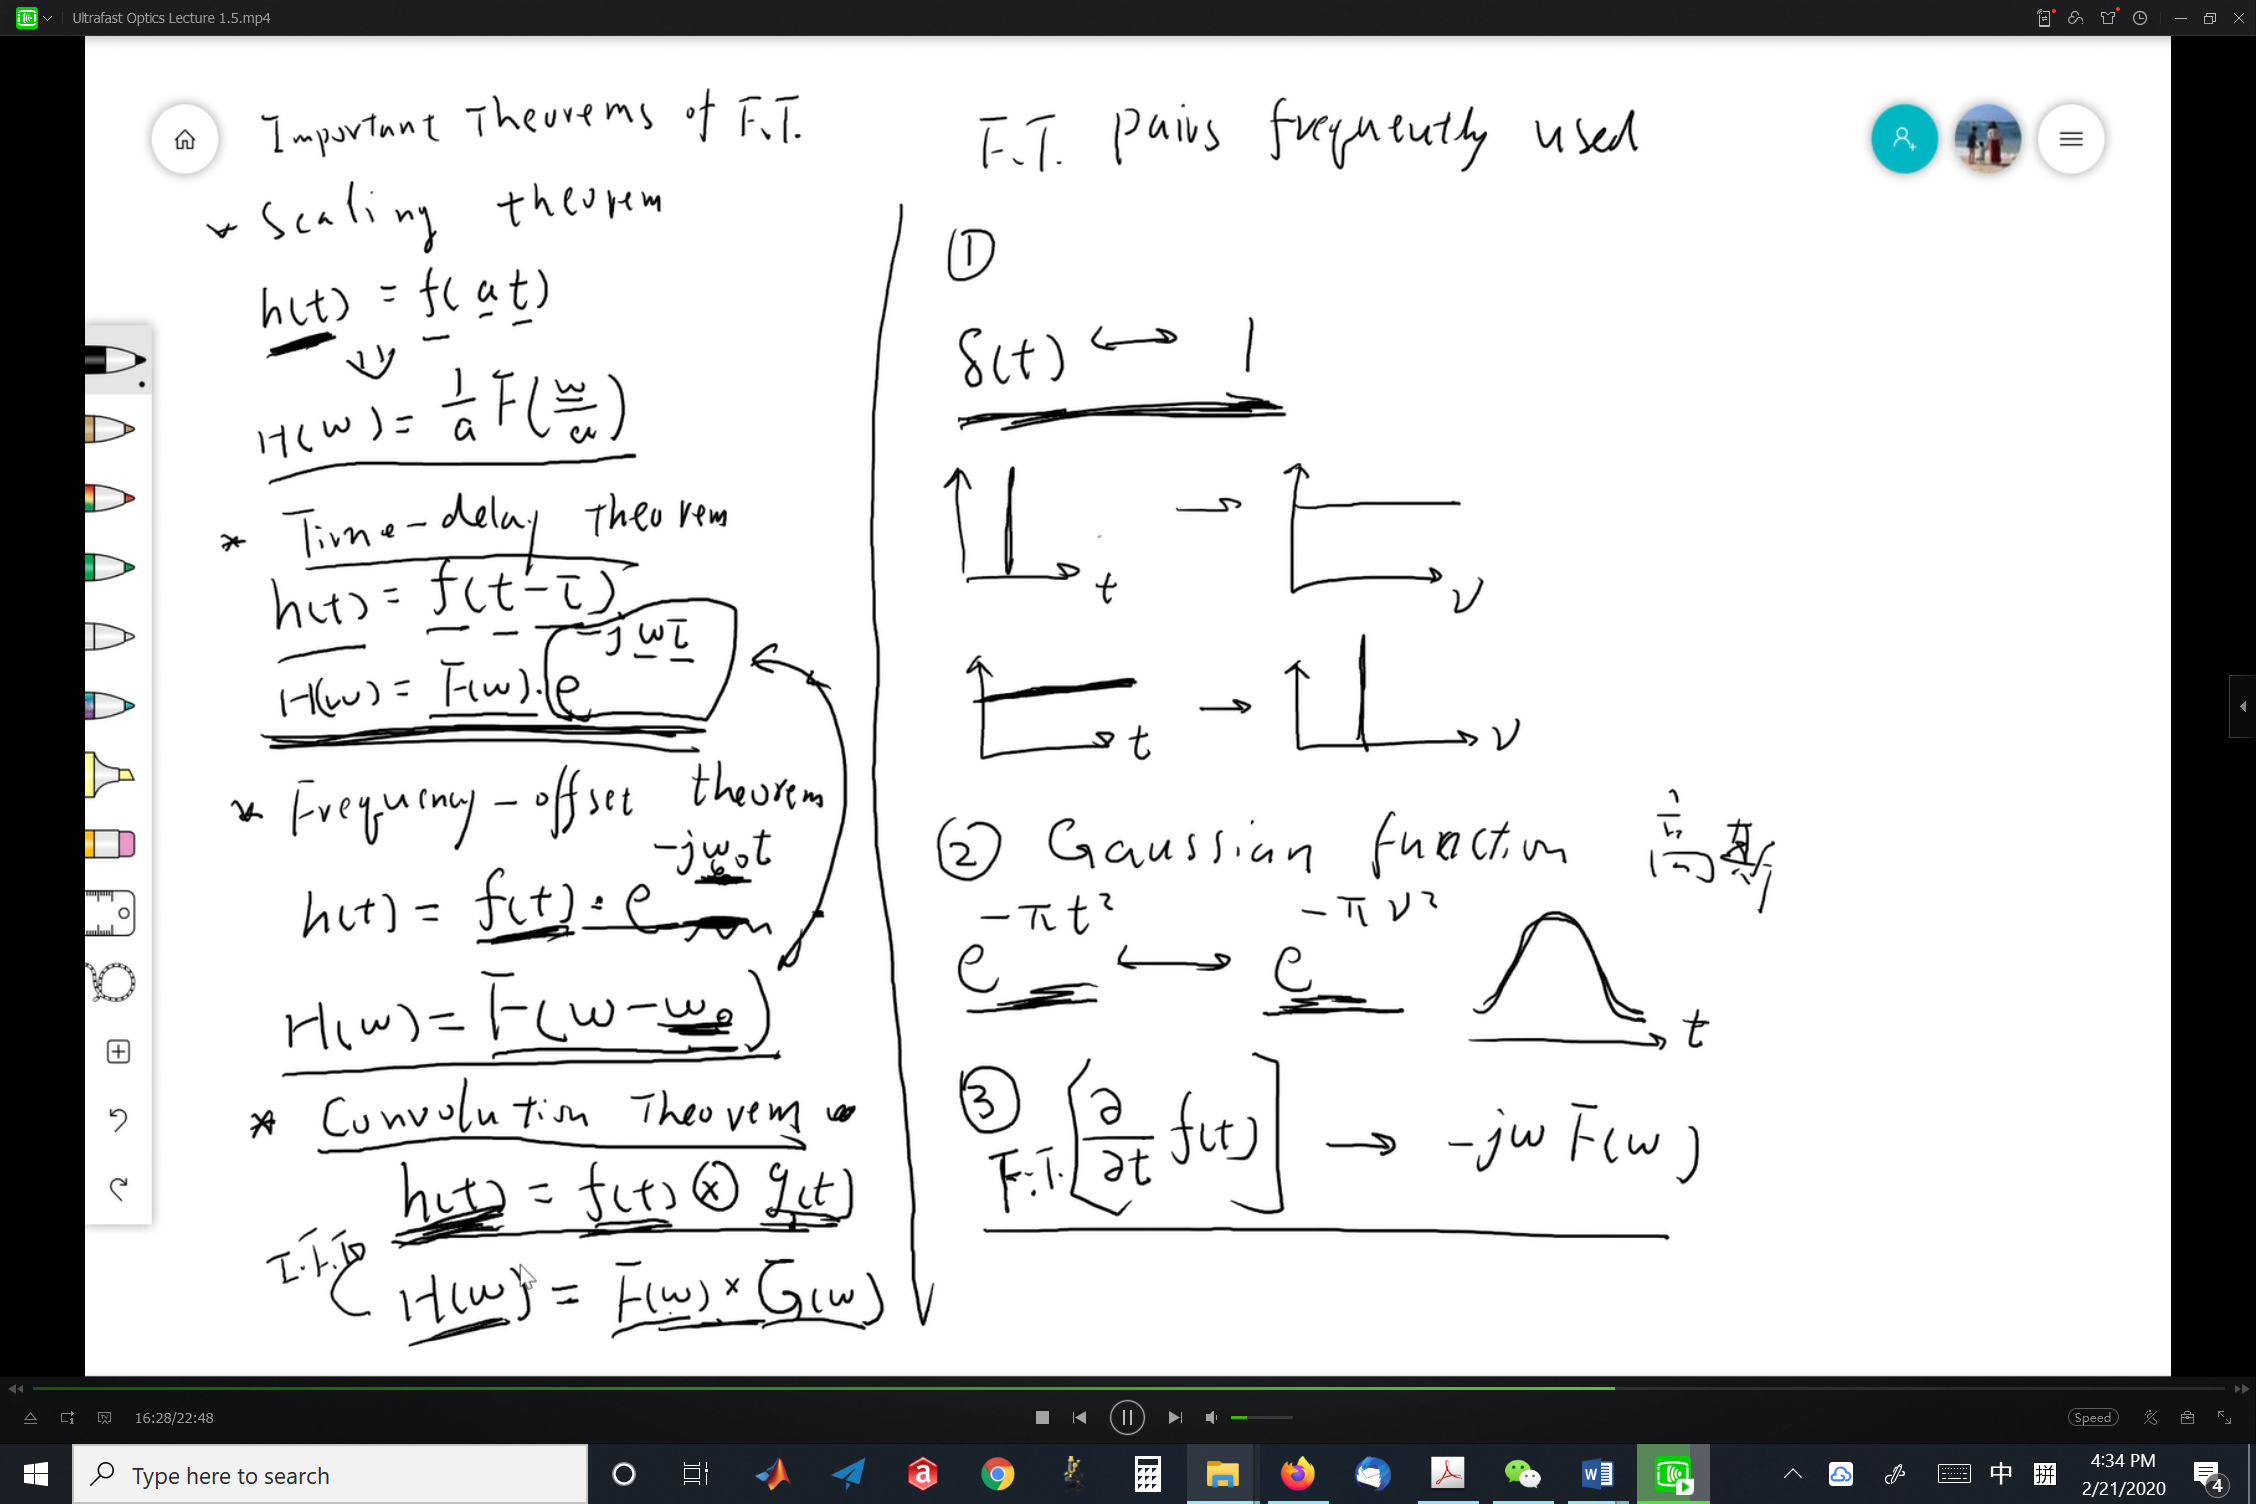 Ultrafast Optics Lecture 1.5.mp4
Important Theorems of F.T.
* Scaling theorem
h(t) = f(at)
H(w) = 1/a F(w/a)
* Time-delay theorem
h(t) = f(t-τ)
H(w) = F(w)·e^{-jwτ}
* Frequency-offset theorem
h(t) = f(t)·e^{-jw₀t}
H(w) = F(w-w₀)
* Convolution Theorem
h(t) = f(t) ⊗ g(t)
I.F.T.
H(w) = F(w) × G(w)
F.T. pairs frequently used
①
δ(t) ↔ 1
t → ν
t → ν
② Gaussian function
e^{-πt²} ↔ e^{-πν²}
t
③ F.T. [∂/∂t f(t)] → -jw F(w)
16:28/22:48
Speed
Type here to search
中
拼
4:34 PM
2/21/2020
4